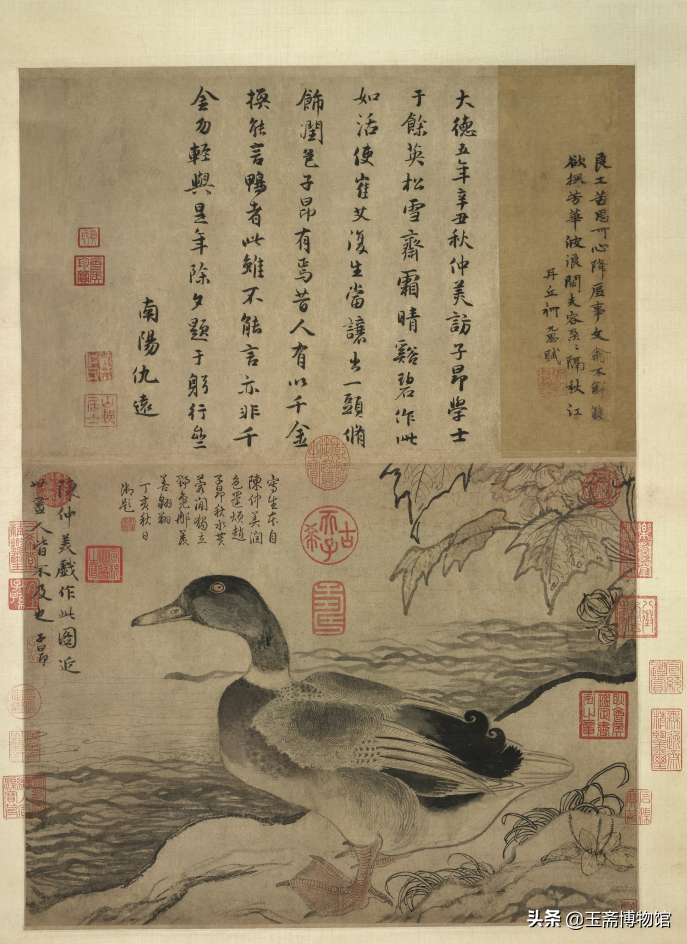 良工苦思可心降底事文禽不解雙
欲採芳華波浪闊夫容朵〻隔秋江
丹丘柯九思賦
大德五年辛丑秋仲美訪子昂學士
于餘英松雪齋霜晴谿碧作此
如活使崔艾復生當讓出一頭脩
飾潤色子昂有焉昔人有以千金
換能言鴨者此雖不能言亦非千
金勿輕與是年除夕題于躬行齋
南陽仇遠
寫生本自
陳仲美潤
色還煩趙
子昂秋水芙
蓉閒獨立
野鳧那羨
善翱翔
丁亥秋日
御題
陳仲美戲作此圖近
世畫人皆不及也子昂
古希天子
头条 @玉斋博物馆